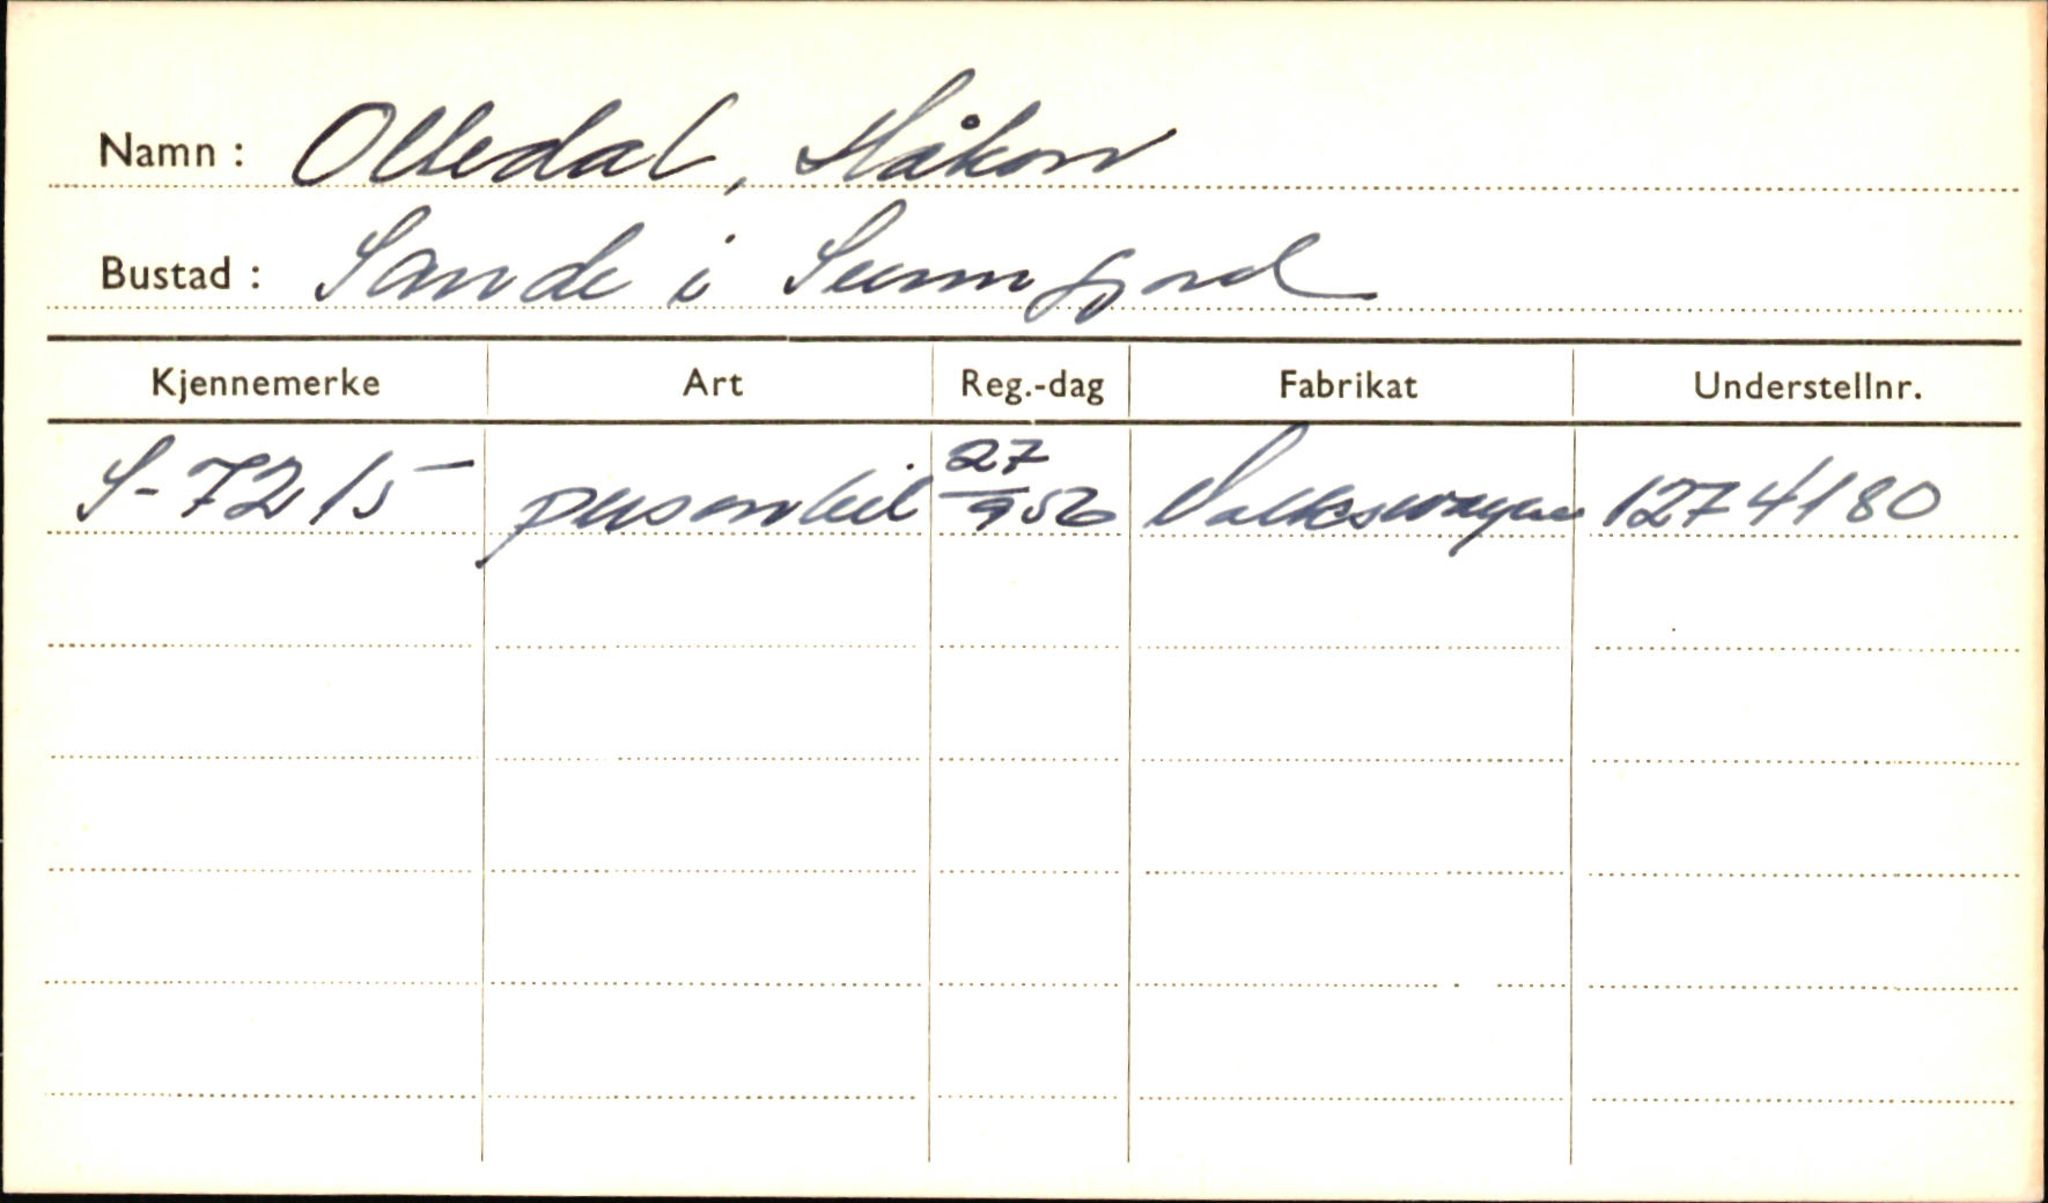 Namn : Olledal, Håkon
Bustad : Sande i Sunnfjord
Kjennemerke Art Reg.-dag Fabrikat Understellnr.
S-7215 personbil 27/9 56 Volkswagen 1274180